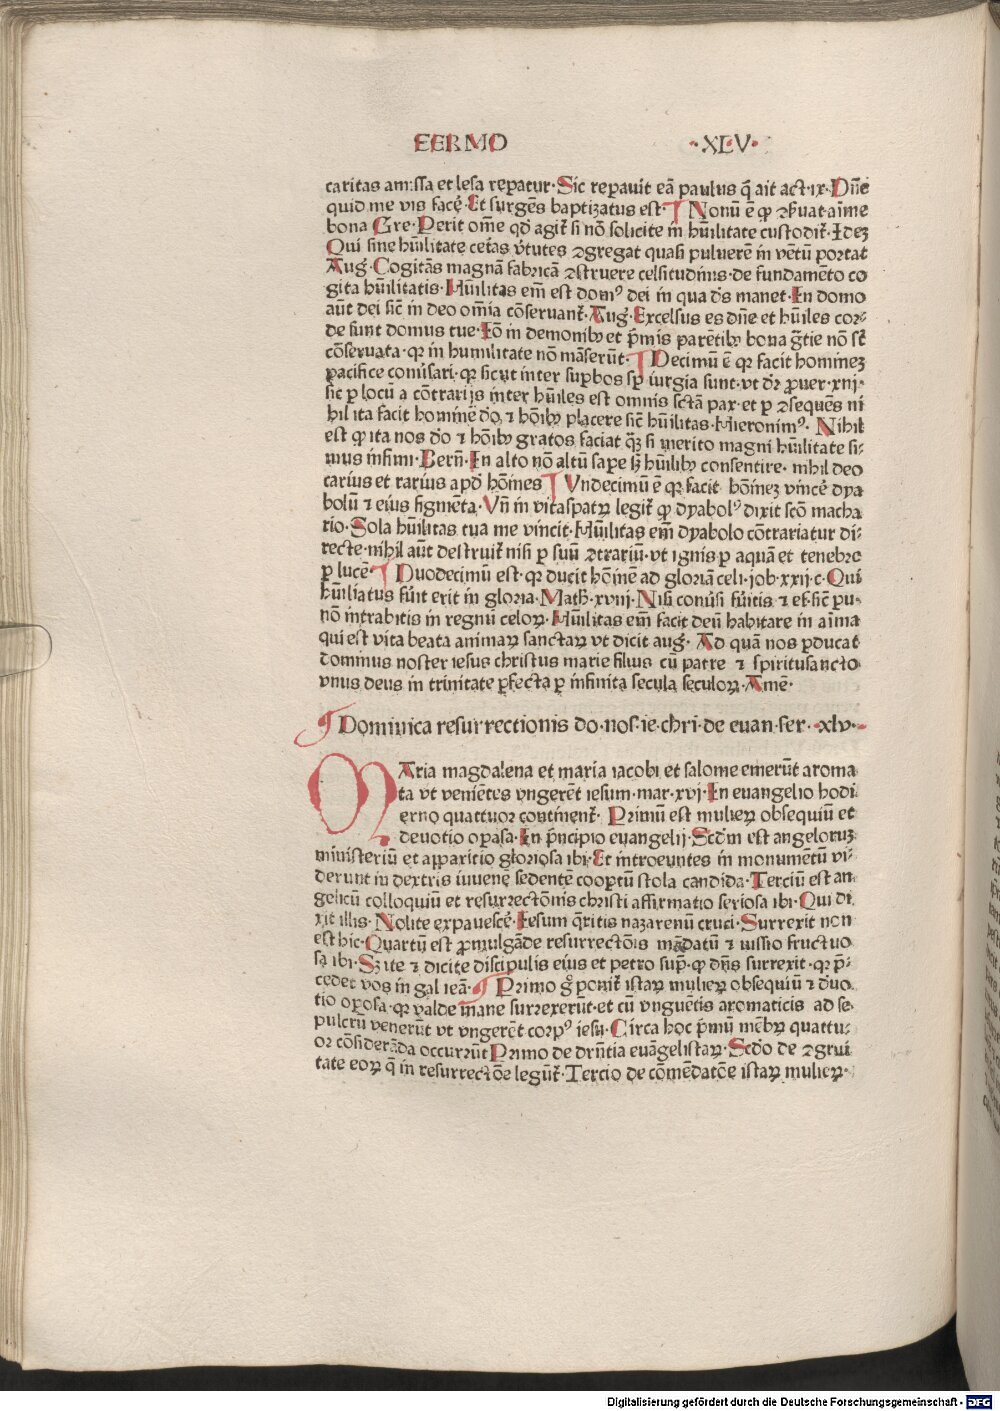 EERMO ·XLV·
caritas amissa et lesa reparatur· Sic reparauit eā paulus q̄ ait act·ix· Dn̄e
quid me vis facẹ̄ Et surgēs baptizatus est· Nonū ē ꝙ ꝯẜuat aīme
bona Gre· Perit om̄e qd̄ agit̃ si nō solicite in hu̅ilitate custodit̃· Ideꝫ
Qui sine hūilitate cet̃as v̓tutes ꝯgregat quasi puluerē in vētū portat
Aug̓· Cogitās magnā fabricā ꝯstruere celsitudinis· de fundamēto co
gita hūilitatis· Hūilitas em̄ est domꝰ dei in qua dn̄s manet· In domo
aūt dei sic̄ in deo om̄ia cōseruant̃· Aug̓· Excelsus es dn̄e et hūiles cor⸗
de sunt domus tue· Iō in demonibꝫ et p̄mis parētibꝫ bona gr̄tie nō st̄
cōseruata· qꝛ in humilitate nō māserūt· Decimū ē qꝛ facit homineꝫ
pacifice conu̓sari· qꝛ sicut inter suꝑbos sp̄ iurgia sunt· vt dr̄ ꝓuer· xiij·
sic ꝑ locū a cōtrarijs inter hūiles est omnis sctā pax· et ꝑ ꝯsequēs ni
hil ita facit hominē dō, ⁊ hōibꝫ placere sic̄ hūilitas· Hieronimꝰ· Nihil
est ꝙ ita nos dō ⁊ hōibꝫ gratos faciat q̄ꝫ si merito magni hūilitate si⸗
mus infimi· Bern̄· In alto nō altū sapere sꝫ hūilibꝫ consentire· nihil deo
carius et rarius apd̓ hōines Vndecimū ē qꝛ facit hōineꝫ vincẹ̄ dya
bolū ⁊ eius figmēta· Vn̄ in vitaspatꝝ legit̃ ꝙ dyabolꝰ dixit scō macha
rio· Sola hūilitas tua me vincit· Hūilitas em̄ dyabolo cōtrariatur di⸗
recte· nihil aūt destruit̃ nisi ꝑ suū ꝯtrariū· vt ignis ꝑ aquā et tenebre
ꝑ lucē· Duodecimū est· qꝛ ducit hōinē ad gloriā celi· iob· xxij·c· Qui
hūiliatus fu̓it erit in gloria· Math̓· xviij· Nisi conu̓si fu̓itis ⁊ ef· sic̄ pu⸗
nō intrabitis in regnū celoꝝ· Hūilitas em̄ facit deū habitare in aīma
qui est vita beata animaꝝ sanctaꝝ vt dicit aug̓· Ad quā nos ꝑducat
dominus noster iesus christus marie filius cū patre ⁊ spiritusancto
vnus deus in trinitate ꝑfecta ꝑ infinita secula seculoꝝ· Amē·
Dominica resurrectionis do·nos·ie·chri·de euan·ser· ·xlv·
MAria magdalena et maria iacobi et salome emerūt aroma
ta vt veniētes vngerēt iesum· mar· xvj· In euangelio hodi
erno quattuor continent̃· Primū est mulieꝝ obsequiū et
deuotio oꝑosa· In p̄ncipio euangelij· Scd̓m est angeloruꝫ
ministeriū et apparitio gloriosa ibi· Et introeuntes in monumētū vi⸗
derunt in dextris iuuenē sedentē cooꝑtū stola candida· Terciū est an
gelicū colloquiū et resurrectōnis christi affirmatio seriosa ibi· Qui di
xit illis· Nolite expauescẹ̄· Iesum q̄ritis nazarenū cruci· Surrexit non
est hic· Quartū est ꝓmulgāde resurrectōis mādatū ⁊ iussio fructuo
sa ibi· Szite ⁊ dicite discipulis eius et petro sup̄· ꝙ dn̄s surrexit· qꝛ p̄⸗
cedet vos in galileā· Primo g̊ ponit̃ istaꝝ mulieꝝ obsequiū ⁊ deuo
tio oꝑosa· qꝛ valde mane surrexerūt· et cū vnguētis aromaticis ad se
pulcru venerūt vt vngerēt corpꝰ iesu· Circa hoc p̄mū mēbꝝ quattu⸗
or cōsiderāda occurrūt Primo de drn̄tia euāgelistaꝝ· Scd̓o de ꝯgrui
tate eoꝝ q̄ in resurrectōe legūt̃· Tercio de cōmēdatōe istaꝝ mulieꝝ·
Digitalisierung gefördert durch die Deutsche Forschungsgemeinschaft - DFG